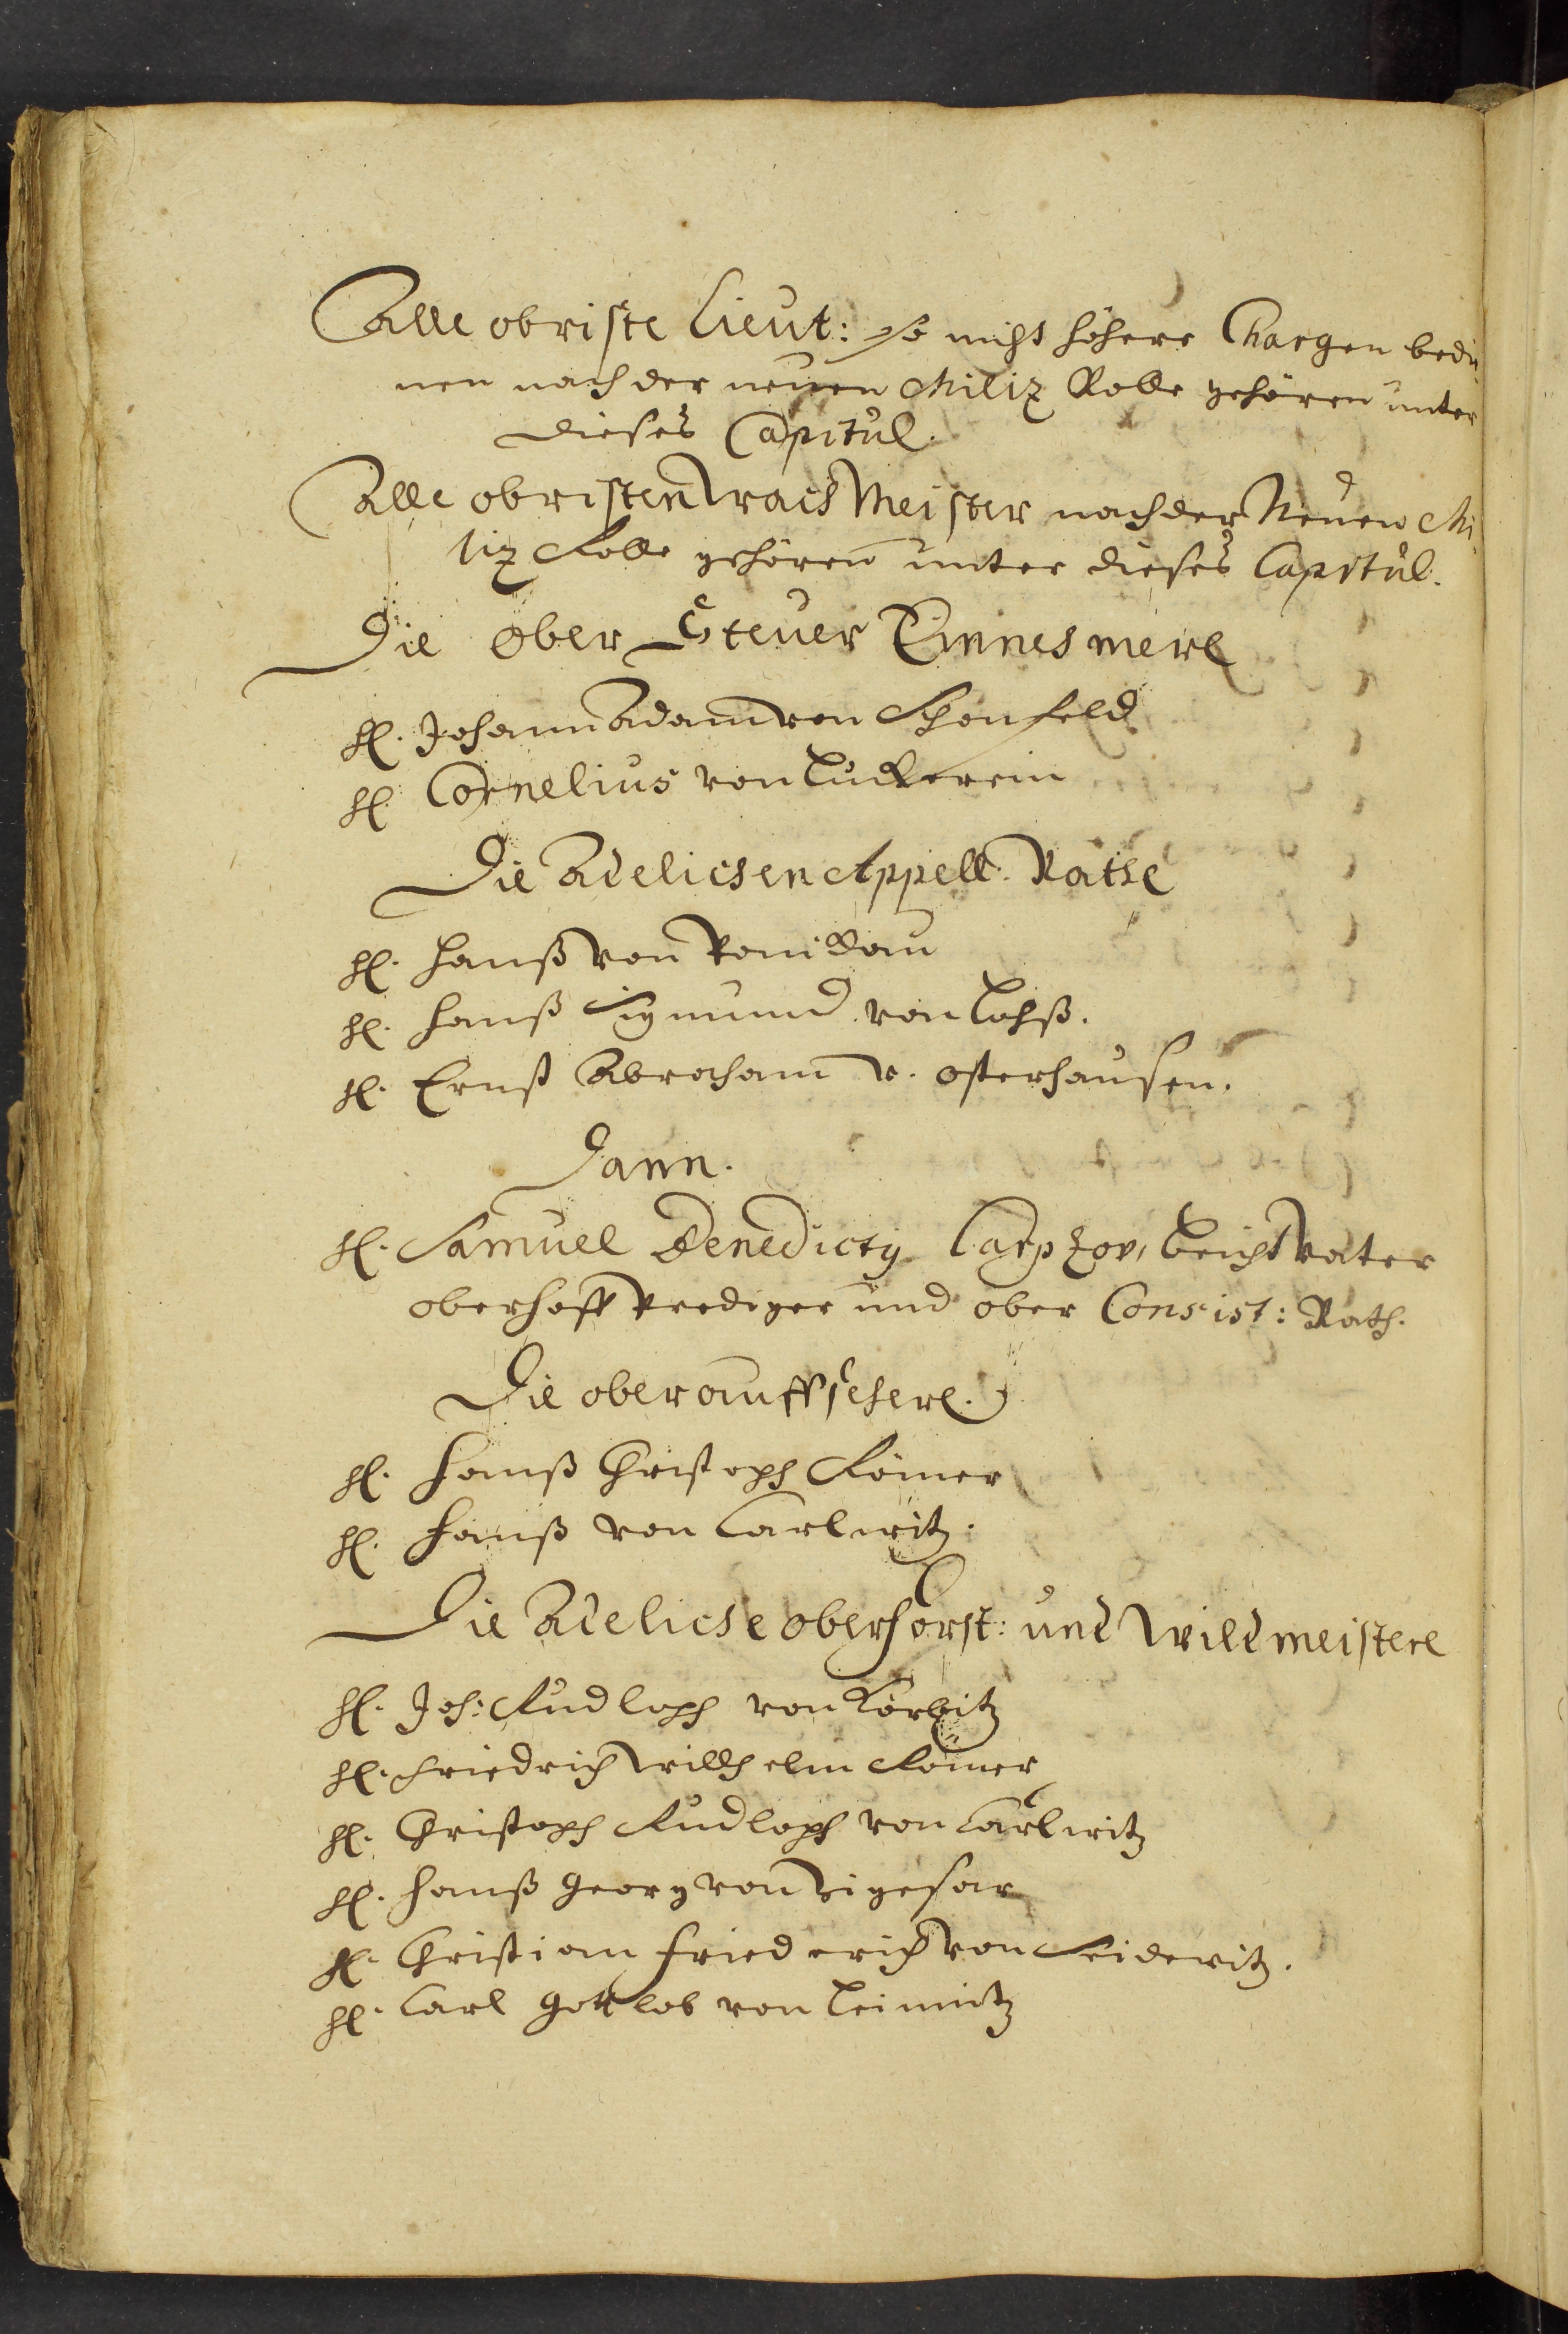 Alle obriste Lieut: so nicht höhere Chargen bedie
nen nach der neuen Miliz Rolle gehören unter
dieses Capitul.
Alle obristen Wach Meister nach der Neuen Mi
liz Rolle gehören unter dieses Capitul.
Die Ober Steuer Einnehmere
H. Johann Adam von Schönfeld
H. Cornelius von
Die Adelichen Appell: Räthe
H. Hanß von Ponickau
H. Hanß Sigmund von Loß.
H. Ernst Abraham v. Osterhausen.
Dann.
H. Samuel Benedicty Carpzov, Beicht Vater
oberhoff Prediger und ober Consist: Rath.
Die oberauffsehere.
H. Hanß Christoph Römer
H. Hanß von Carlwitz.
Die Adeliche oberforst: und Wildmeistere
H. Joh: Rudloph von Körbitz
H. Friedrich Willhelm Römer
H. Christoph Rudloph von Carlwitz
H. Hanß Georg von Zigesar
H. Christian Friederich von
H. Carl Gottlob von Leimnitz